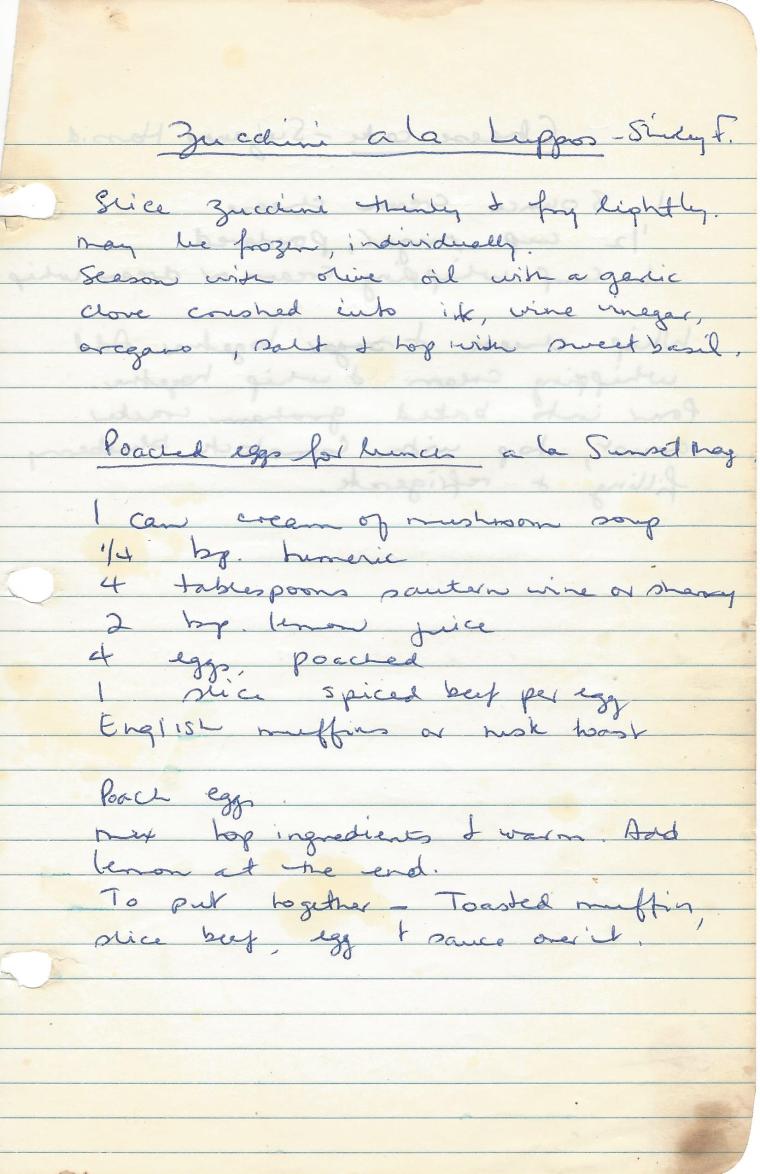 Zucchini a la Luppos - Shirley F.
Slice zucchini thinly & fry lightly.
May be frozen, individually.
Season with olive oil with a garlic
clove crushed into it, wine vinegar,
oregano, salt & top with sweet basil.
Poached eggs for lunch a la Sunset Mag.
1 can cream of mushroom soup
1/4 tsp. tumeric
4 tablespoons sautern wine or sherry
2 tsp. lemon juice
4 eggs, poached
1 slice spiced beef per egg
English muffins or rusk toast
Poach eggs.
Mix top ingredients & warm. Add
lemon at the end.
To put together - Toasted muffin,
slice beef, egg & sauce over it.